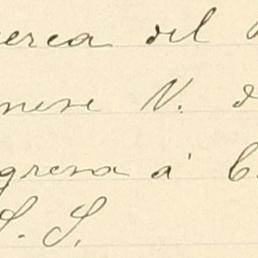 erca del
nese N. d
gresa á C
S. S.